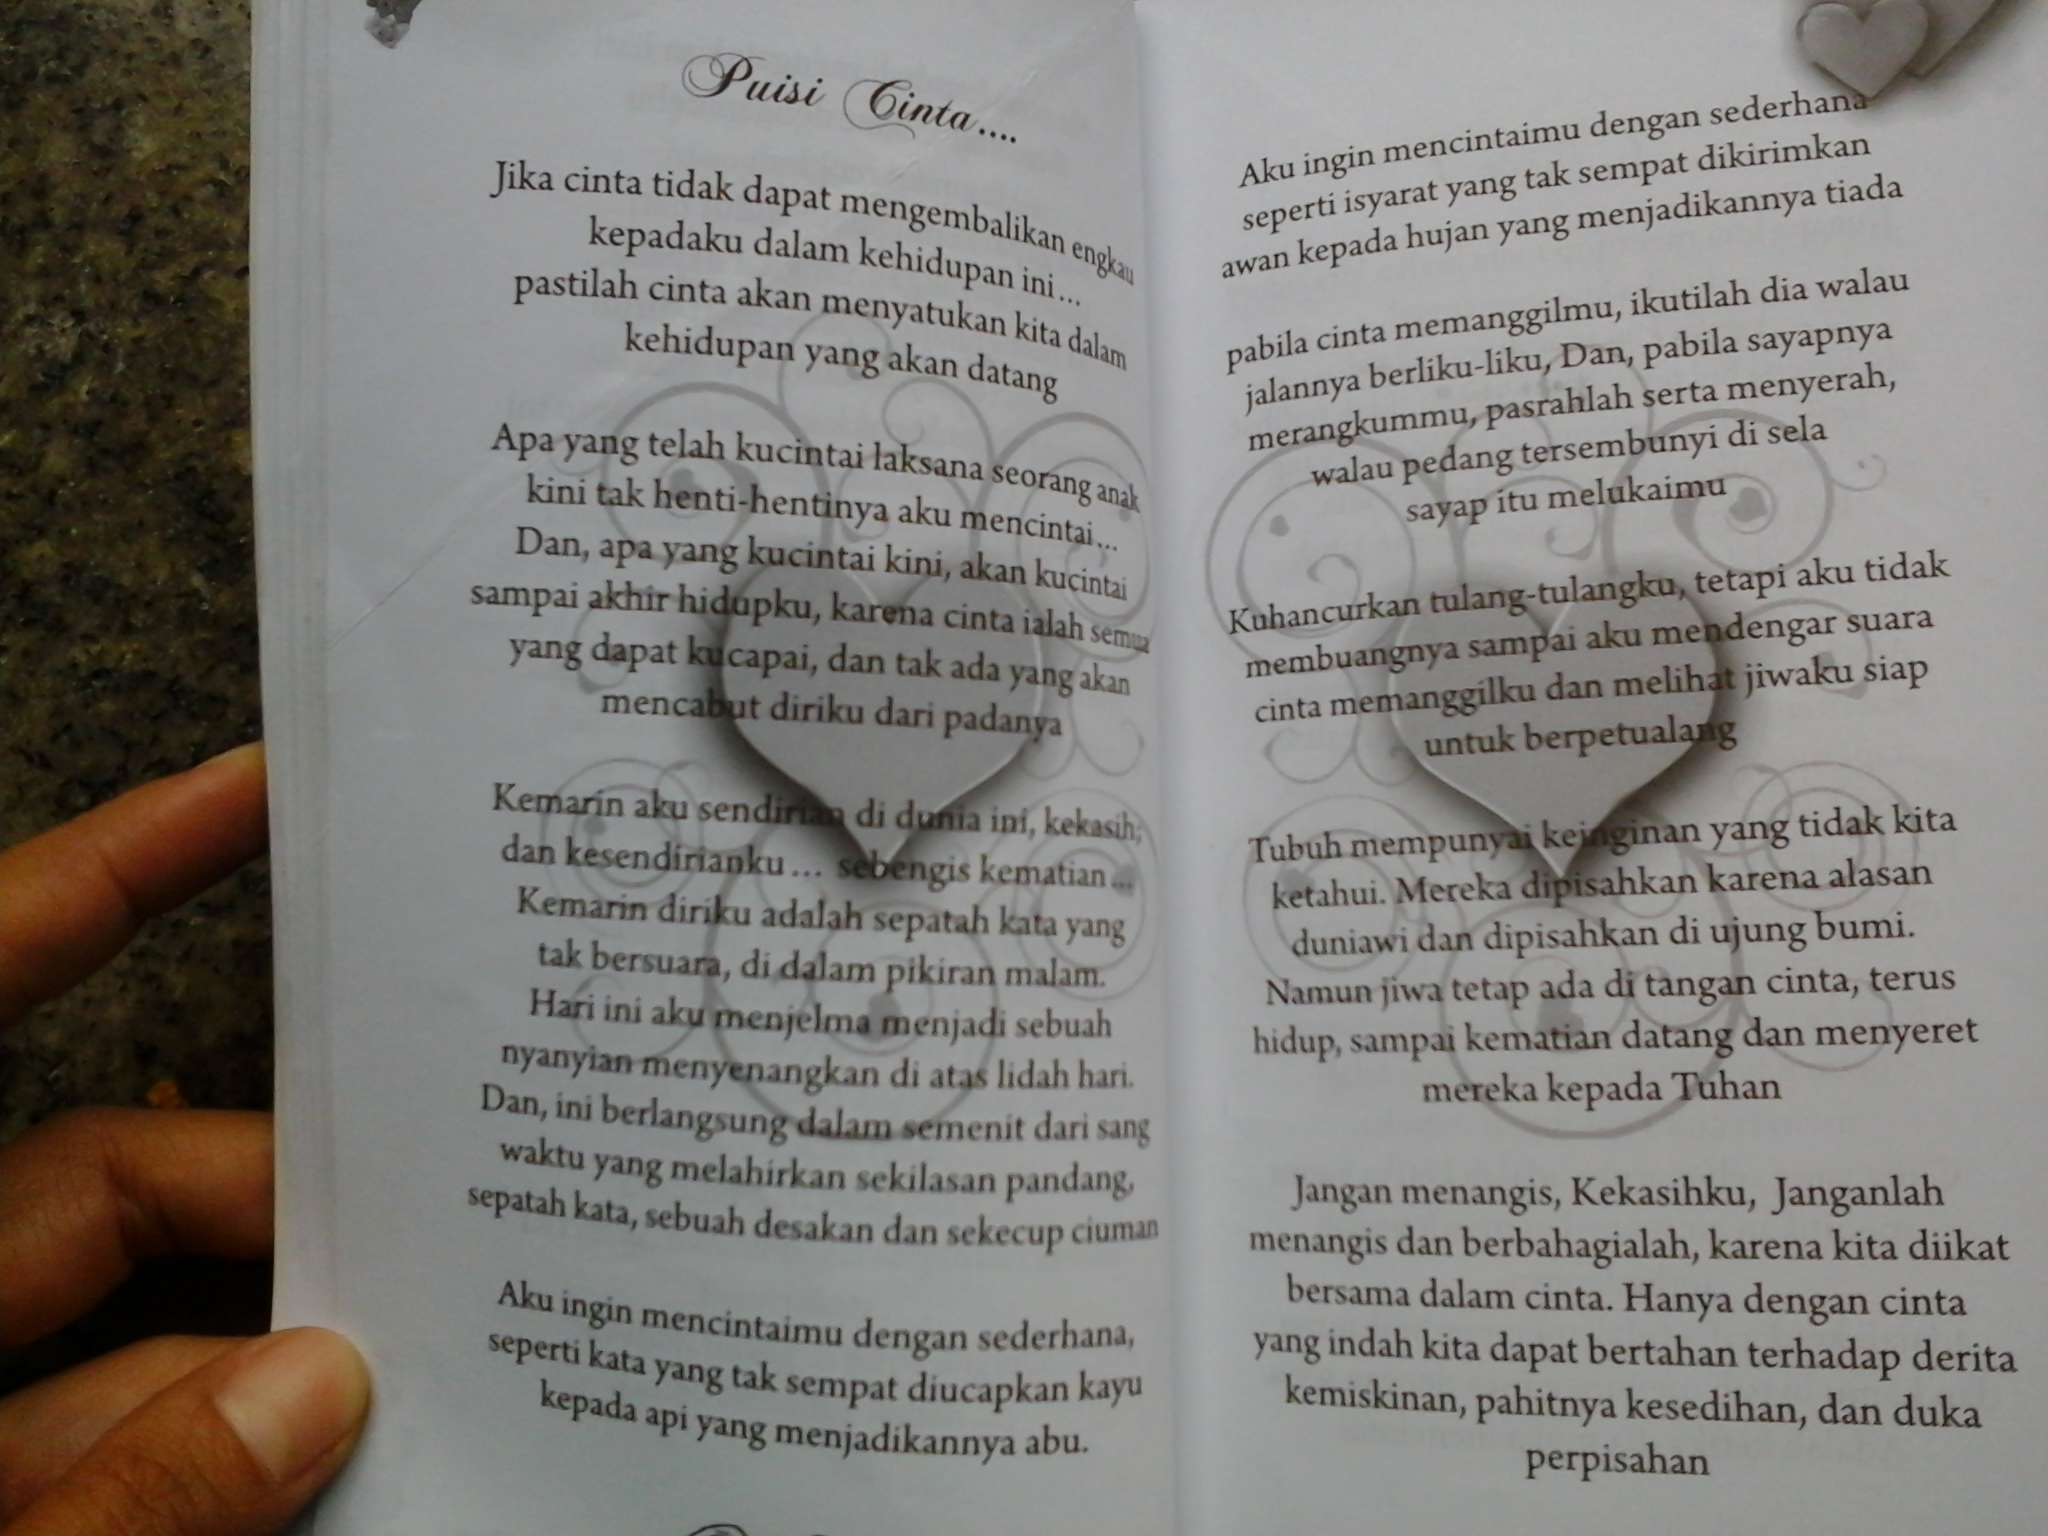 Puisi Cinta....
Jika cinta tidak dapat mengembalikan engkau
kepadaku dalam kehidupan ini...
pastilah cinta akan menyatukan kita dalam
kehidupan yang akan datang
Apa yang telah kucintai laksana seorang anak
kini tak henti-hentinya aku mencintai...
Dan, apa yang kucintai kini, akan kucintai
sampai akhir hidupku, karena cinta ialah semua
yang dapat kucapai, dan tak ada yang akan
mencabut diriku dari padanya
Kemarin aku sendirian di dunia ini, kekasih;
dan kesendirianku... sebengis kematian...
Kemarin diriku adalah sepatah kata yang
tak bersuara, di dalam pikiran malam.
Hari ini aku menjelma menjadi sebuah
nyanyian menyenangkan di atas lidah hari.
Dan, ini berlangsung dalam semenit dari sang
waktu yang melahirkan sekilasan pandang,
sepatah kata, sebuah desakan dan sekecup ciuman
Aku ingin mencintaimu dengan sederhana,
seperti kata yang tak sempat diucapkan kayu
kepada api yang menjadikannya abu.
Aku ingin mencintaimu dengan sederhana
seperti isyarat yang tak sempat dikirimkan
awan kepada hujan yang menjadikannya tiada
pabila cinta memanggilmu, ikutilah dia walau
jalannya berliku-liku, Dan, pabila sayapnya
merangkummu, pasrahlah serta menyerah,
walau pedang tersembunyi di sela
sayap itu melukaimu
Kuhancurkan tulang-tulangku, tetapi aku tidak
membuangnya sampai aku mendengar suara
cinta memanggilku dan melihat jiwaku siap
untuk berpetualang
Tubuh mempunyai keinginan yang tidak kita
ketahui. Mereka dipisahkan karena alasan
duniawi dan dipisahkan di ujung bumi.
Namun jiwa tetap ada di tangan cinta, terus
hidup, sampai kematian datang dan menyeret
mereka kepada Tuhan
Jangan menangis, Kekasihku, Janganlah
menangis dan berbahagialah, karena kita diikat
bersama dalam cinta. Hanya dengan cinta
yang indah kita dapat bertahan terhadap derita
kemiskinan, pahitnya kesedihan, dan duka
perpisahan